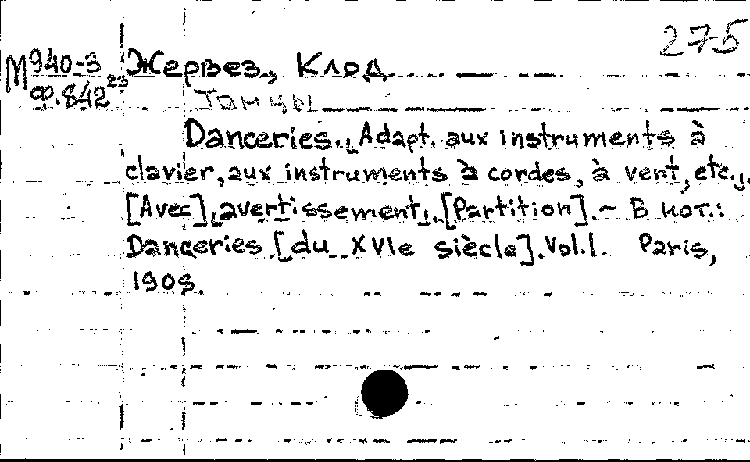 275
М 940-3 Жервез, Клод
Ф.842 23 Танцы
Danceries. Adapt. aux instruments à
clavier, aux instruments à cordes, à vent, etc.,
[Avec] avertissement. [Partition]. – В нот.:
Danceries [du XVIe siècle]. Vol.1. Paris,
1908.